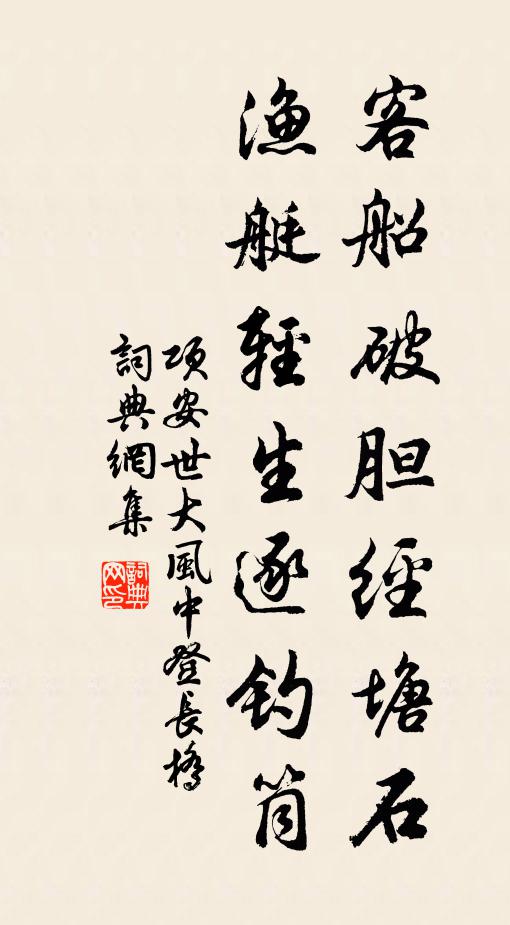 客船破胆經塘石
漁艇輕生逐釣筒
項安世大風中登長橋
詞典網集
詞典
网印